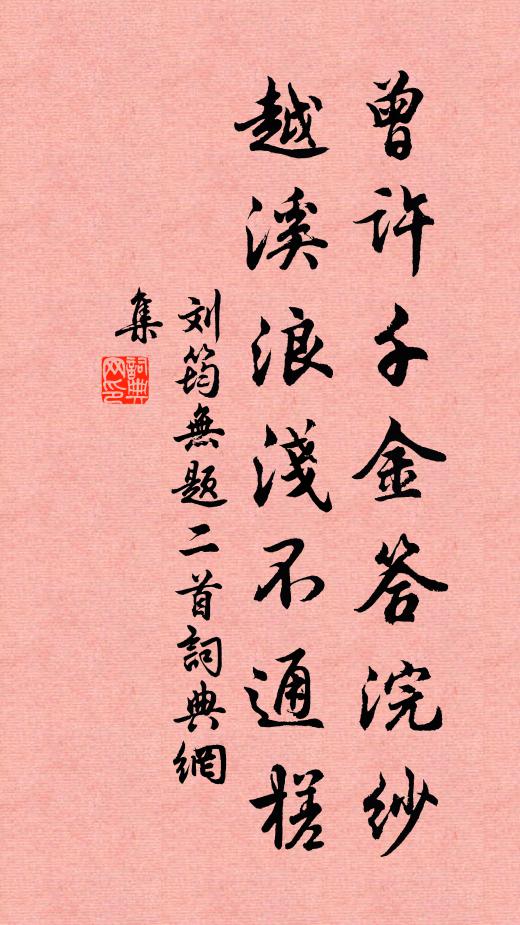 曾许千金答浣纱
越溪浪淺不通槎
刘筠無题二首詞典網
集
詞典网印